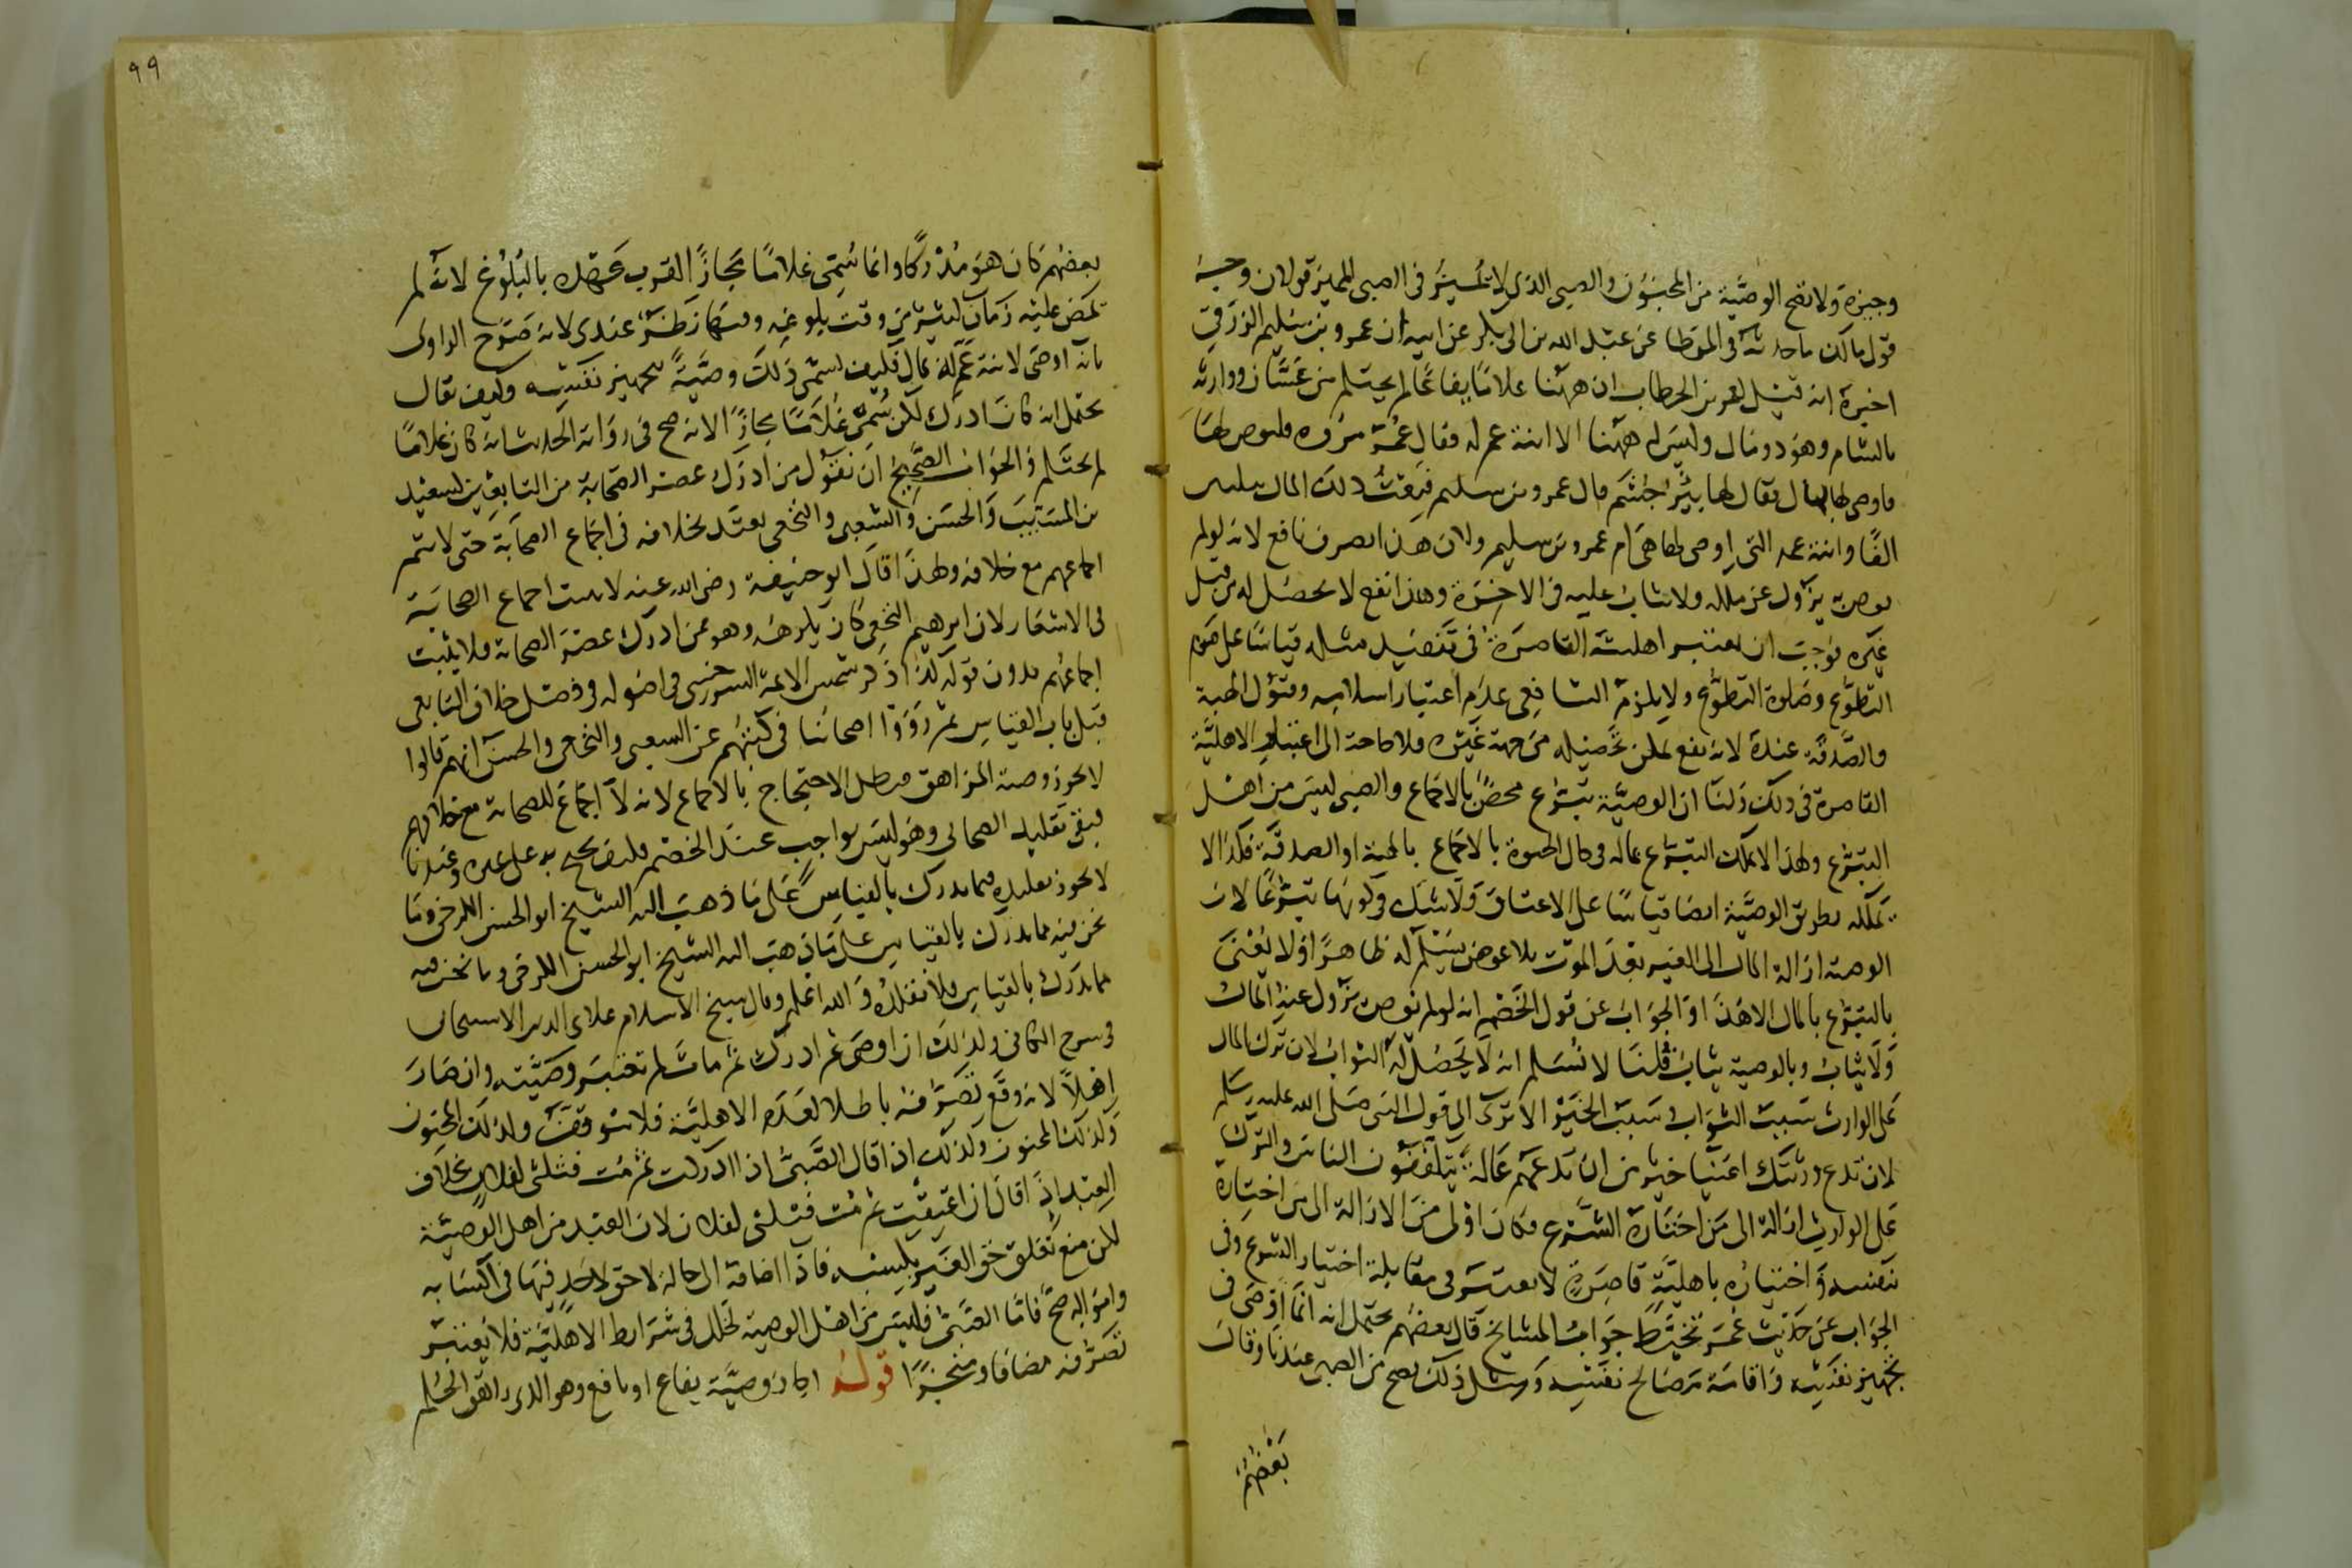 وجيزة ولا تصح الوصية من المجنون والصبي الذي لا يميز في الصبي المميز قولان وجه
قول مالك ما حدثه في الموطا عن عبد الله بن ابي بكر عن ابيه ان عمرو بن سليم الزرقي
اخبره انه قيل لعمر بن الخطاب ان ههنا غلاما يفاعا لم يحتلم من غسان ووارثه
بالشام وهو ذو مال وليس له ههنا الا ابنة عم له فقال عمر مروه فليوص لها
فاوصى لها بمال يقال لها بئر جشم قال عمرو بن سليم فبعت ذلك المال بثلاثين
الفا وابنة عمه التي اوصى لها هي ام عمرو بن سليم ولان هذا تصرف نافع لانه لو لم
يوص به يزول عن ملكه ولا يثاب عليه في الاخرة وهذا نفع لا يحصل له من قبل
غيره فوجب ان يعتبر اهليته القاصرة في تحصيل مثله قياسا على صوم
التطوع وصلوة التطوع ولا يلزم الشافعي عدم اعتبار اسلامه وقبول الهبة
والصدقة عنده لانه نفع يمكن تحصيله من جهة غيره فلا حاجة الى اعتبار الاهلية
القاصرة في ذلك ولنا ان الوصية تبرع محض بالاجماع والصبي ليس من اهل
التبرع ولهذا لا يملك التبرع بماله في حال الحيوة بالاجماع بالهبة او الصدقة فكذا لا
يملكه بطريق الوصية ايضا قياسا على الاعتاق ولا شك في كونها تبرعا لان
الوصية ازالة المال الى الغير بعد الموت بلا عوض يسلم له ظاهرا ولا يعنى
بالتبرع بالمال الا هذا والجواب عن قول الخصم انه لو لم يوص يزول عنه المال
ولا يثاب وبالوصية يثاب قلنا لا نسلم انه لا يحصل له الثواب لان ترك المال
على الوارث سبب الثواب وسبب الخير الا ترى الى قول النبي صلى الله عليه وسلم
لان تدع ورثتك اغنيا خير من ان تدعهم عالة يتكففون الناس والترك
على الوارث ازالة الى من اختاره الشرع فكان اولى من الازالة الى من اختاره
بنفسه واختياره باهلية قاصرة لا يعتبر في مقابلة اختيار الشرع وفي
الجواب عن حديث عمر تخبط جواب المشايخ قال بعضهم يحتمل انه انما اوصى في
تجهيز نفسه واقامة مصالح نفسه ومثل ذلك يصح من الصبي عندنا وقال
بعضهم
٩٩
بعضهم كان هو مدركا وانما سمي غلاما مجازا لقرب عهده بالبلوغ لانه لم
يمض عليه زمان كثير من وقت بلوغه وفيهما نظر عندي لانه صرح الراوي
بانه اوصى لابنة عم له بمال فكيف يسمى ذلك وصية بتجهيز نفسه وكيف يقال
يحتمل انه كان ادرك لكن سمي غلاما مجازا لانه صح في رواية الحديث انه كان غلاما
لم يحتلم والجواب الصحيح ان نقول من ادرك عصر الصحابة من التابعين كسعيد
بن المسيب والحسن والشعبي والنخعي يعتد بخلافه في اجماع الصحابة حتى لا يتم
اجماعهم مع خلافه ولهذا قال ابو حنيفة رضي الله عنه لا يثبت اجماع الصحابة
في الاشعار لان ابرهيم النخعي كان يكرهه وهو ممن ادرك عصر الصحابة فلا يثبت
اجماعهم بدون قوله كذا ذكر شمس الائمة السرخسي في اصوله في فصل خلاف التابعي
قبل باب القياس ثم رووا اصحابنا في كتبهم عن الشعبي والنخعي والحسن انهم قالوا
لا يجوز وصية المراهق فبطل الاحتجاج بالاجماع لانه لا اجماع للصحابة مع خلافهم
فبقي تقليد الصحابي وهو ليس بواجب عند الخصم فكيف يحتج به على غيره وعندنا
لا يجوز تقليده فيما يدرك بالقياس على ما ذهب اليه الشيخ ابو الحسن الكرخي وما
نحن فيه مما يدرك بالقياس على ما ذهب اليه الشيخ ابو الحسن الكرخي وما نحن فيه
مما يدرك بالقياس فلا نقلده والله اعلم وقال شيخ الاسلام علاى الدين الاسبيجابي
في شرح الكافي وكذلك ان اوصى ثم ادرك ثم مات لم تعتبر وصيته وان صار
اهلا لانه وقع تصرفه باطلا لعدم الاهلية فلا يتوقف وكذلك المجنون
وكذلك المجنون وكذلك اذا قال الصبي اذا ادركت ثم مت فثلثي لفلان بخلاف
العبد اذا قال ان اعتقت ثم مت فثلثي لفلان لان العبد من اهل الوصية
لكن منع تعلق حق الغير بكسبه فاذا اضافه الى حالة لا حق لاحد فيها في اكسابه
وامواله صح فاما الصبي فليس من اهل الوصية لخلل في شرايط الاهلية فلا يعتبر
تصرفه مضافا ومنجزا قوله اجاز وصية يفاع او يافع وهو الذي راهق الحلم